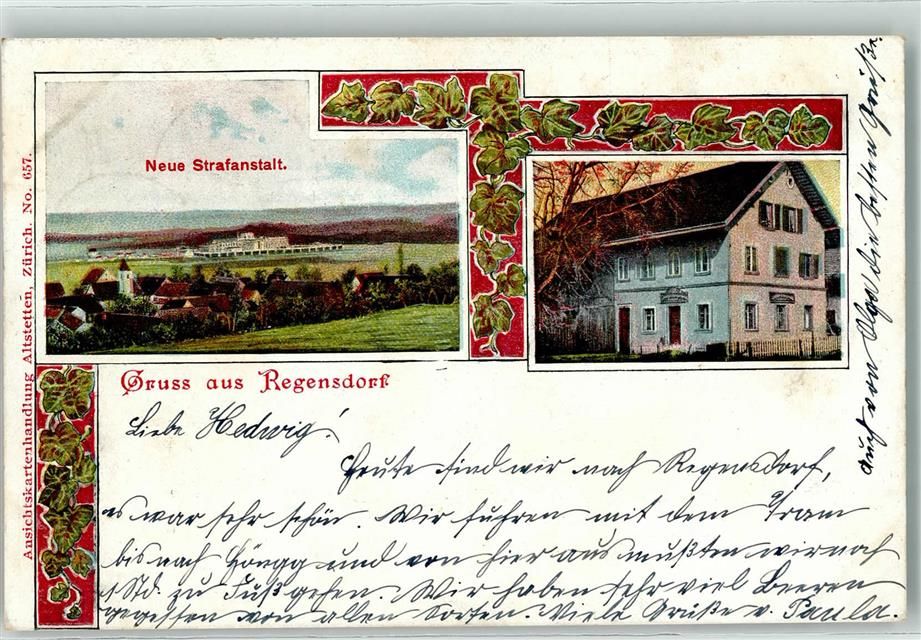 Neue Strafanstalt.
Ansichtskartenhandlung Altstetten, Zürich. No. 657.
Gruss aus Regensdorf
Liebe Hedwig!
Heute sind wir nach Regensdorf,
es war sehr schön. Wir fuhren mit dem Tram
bis nach Höngg und von hier aus mußten wir noch
1 Std. zu Fuß gehen. Wir haben sehr viel Beeren
gegessen von allen Sorten. Viele Grüße v. Paula.
auch von die besten Grüße